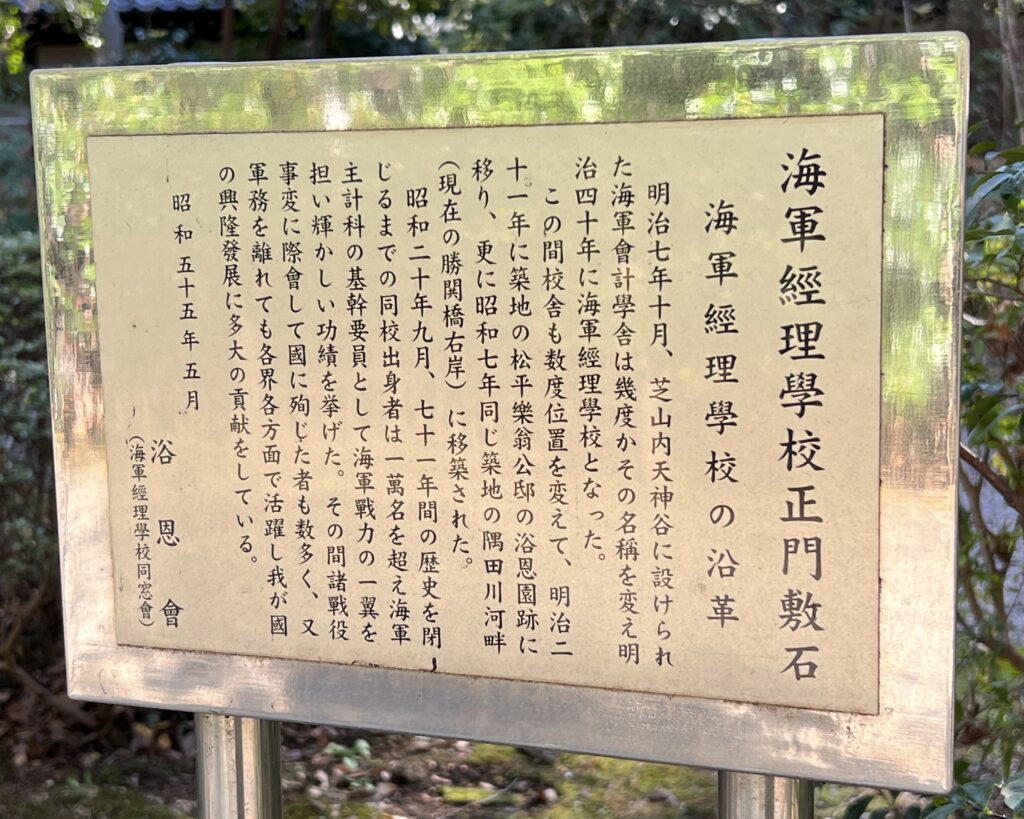 海軍經理學校正門敷石
海軍經理學校の沿革
明治七年十月、芝山内天神谷に設けられ
た海軍會計學舎は幾度かその名稱を変え明
治四十年に海軍經理學校となった。
この間校舎も数度位置を変えて、明治二
十一年に築地の松平樂翁公邸の浴恩園跡に
移り、更に昭和七年同じ築地の隅田川河畔
(現在の勝関橋右岸)に移築された。
昭和二十年九月、七十一年間の歴史を閉
じるまでの同校出身者は一萬名を超え海軍
主計科の基幹要員として海軍戦力の一翼を
担い輝かしい功績を挙げた。その間諸戦役
事変に際會して國に殉じた者も数多く、又
軍務を離れても各界各方面で活躍し我が國
の興隆發展に多大の貢献をしている。
昭和五十五年五月
浴恩會
(海軍經理學校同窓會)